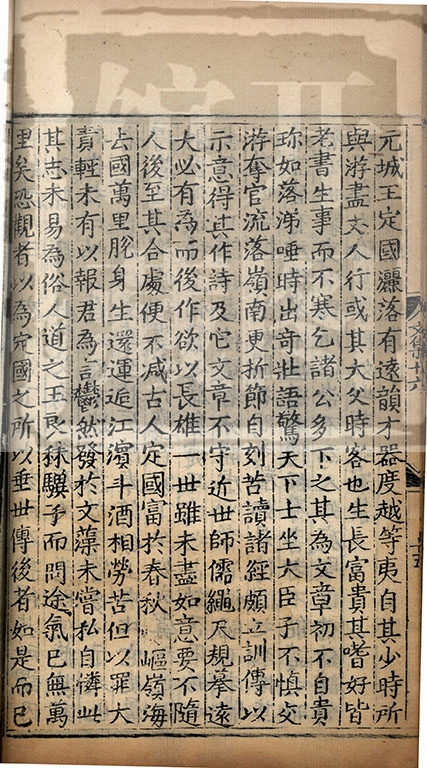 元城王定國灑落有遠韻才器度越等夷自其少時所
與游盡丈人行或其大父時客也生長富貴其嗜好皆
老書生事而不寒乞諸公多下之其為文章初不自貴
珎如落涕唾時出奇壯語驚天下士坐大臣子不慎交
游奪官流落嶺南更折節自刻苦讀諸經頗立訓傳以
示意得其作詩及它文章不守近世師儒繩尺規摹遠
大必有為而後作欲以長雄一世雖未盡如意要不隨
人後至其合處便不減古人定國富於春秋崎嶇嶺海
去國萬里脫身生還運逅江濱斗酒相勞苦但以罪大
責輕未有以報君為言鬱然發於文藻未嘗私自憐此
其志未易為俗人道之王良秣驥子而問途氣已無萬
里矣恐觀者以為定國之所以垂世傳後者如是而已
文集十六
十五